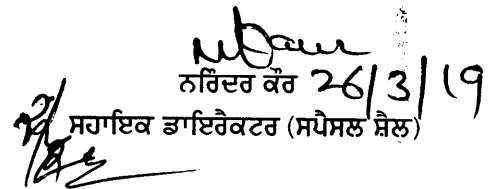 ਨਰਿੰਦਰ ਕੌਰ 26/3/19
ਸਹਾਇਕ ਡਾਇਰੈਕਟਰ (ਸਪੈਸਲ ਸ਼ੈਲ)